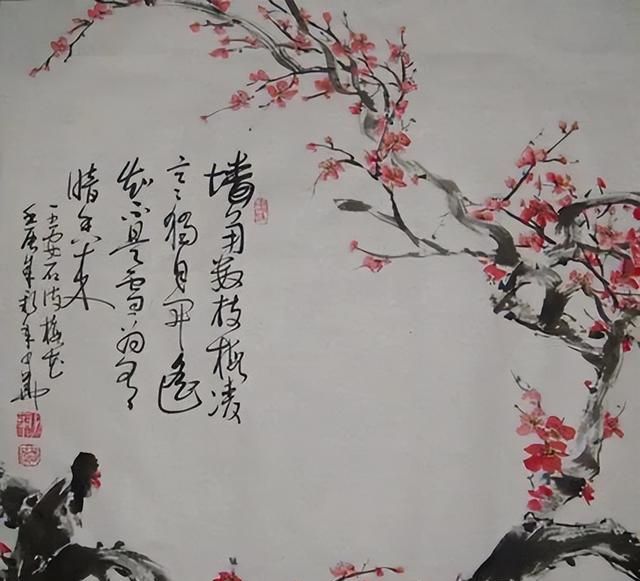 墙角数枝梅凌
寒独自开遥
知不是雪为有
暗香来
王安石诗梅花
壬辰年